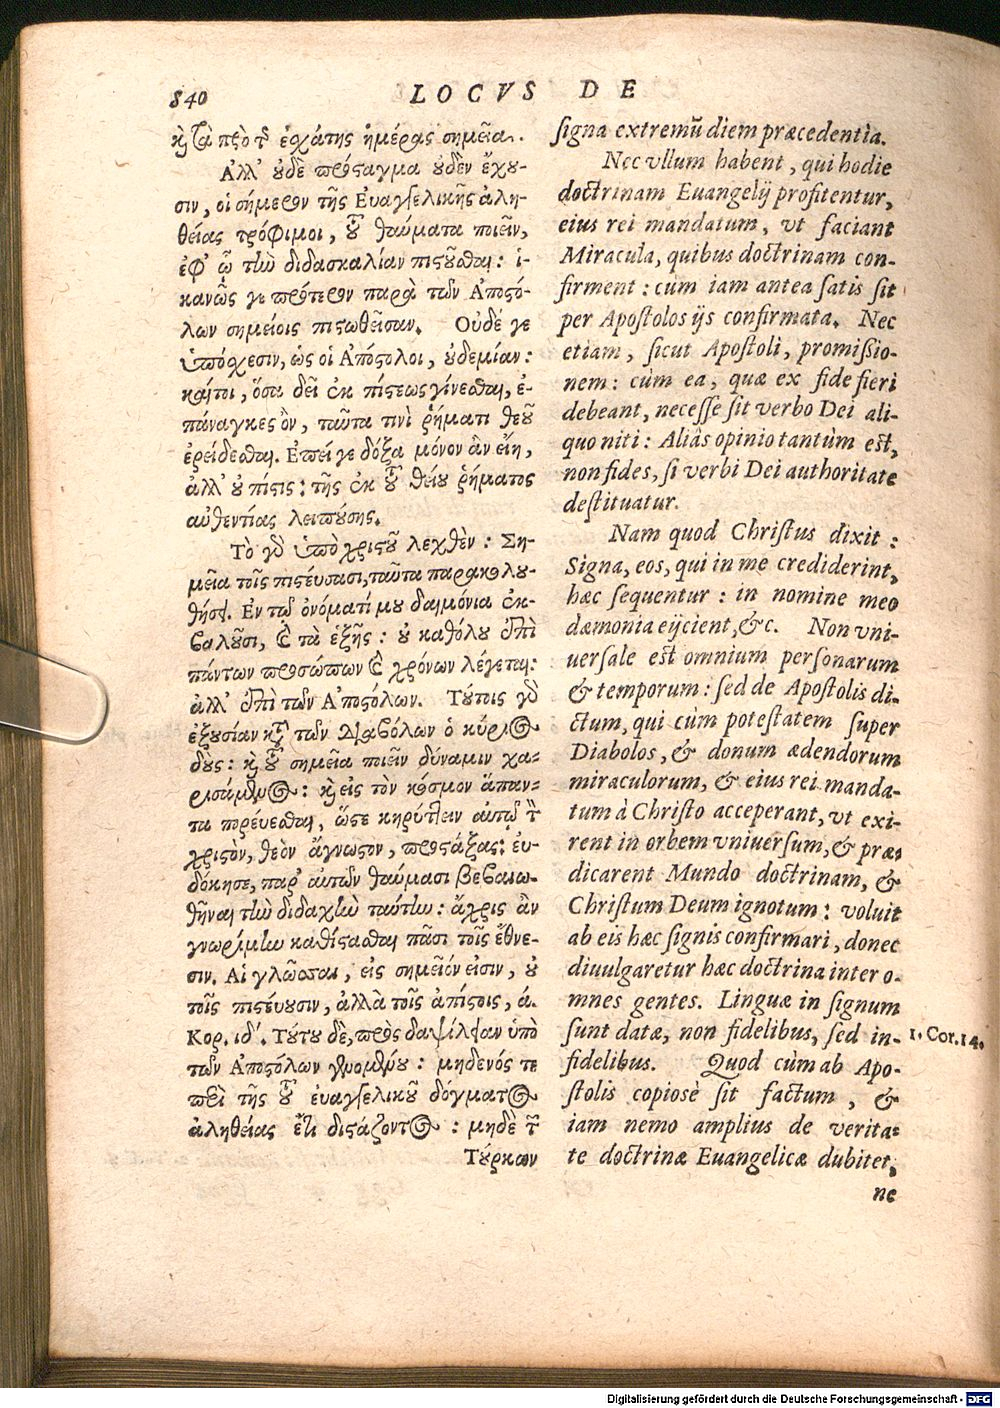 840 LOCVS DE
κỳ τὰ πρὸ τ̃ ἐσχάτης ἡμέρας σημεῖα.
Ἀλλ' οὐδὲ πρόςαγμα οὐδὲν ἔχου-
σιν, οἱ σήμερον τῆς Εὐαγγελικῆς ἀλη-
θείας τρόφιμοι, τοῦ θαύματα ποιεῖν,
ἐφ' ᾧ τὴν διδασκαλίαν πιςοῦσθαι: ἱ-
κανῶς γε πρότερον παρὰ τῶν Ἀποςό-
λων σημείοις πιςωθεῖσαν. Οὐδέ γε
ὑπόσχεσιν, ὡς οἱ Ἀπόςολοι, οὐδεμίαν:
καίτοι, ὅσα δεῖ ἐκ πίςεως γίνεσθαι, ἐ-
πάναγκες ὂν, ταῦτα τινὶ ῥήματι θεοῦ
ἐρείδεσθαι. Ἐπεί γε δόξα μόνον ἂν εἴη,
ἀλλ' οὐ πίςις: τῆς ἐκ τοῦ θείου ῥήματος
αὐθεντίας λειπούσης.
Τὸ γὸ ὑπὸ χριςοῦ λεχθὲν: Ση-
μεῖα τοῖς πιςεύσασι, ταῦτα παρακολου-
θήσει. Ἐν τῷ ὀνόματί μου δαιμόνια ἐκ-
βαλοῦσι, καὶ τὰ ἑξῆς: οὐ καθόλου ἐπὶ
πάντων προσώπων καὶ χρόνων λέγεται:
ἀλλ' ἐπὶ τῶν Ἀποςόλων. Τούτοις γὸ
ἐξουσίαν κατὰ τῶν Διαβόλων ὁ κύριος
δοὺς: κỳ τοῦ σημεῖα ποιεῖν δύναμιν χα-
ρισάμενος: κỳ εἰς τὸν κόσμον ἅπαν-
τα πορεύεσθαι, ὥςε κηρύττειν αὐτῷ τὸν
χριςὸν, θεὸν ἄγνωςον, προςάξας: εὐ-
δόκησε, παρ' αὐτῶν θαύμασι βεβαιω-
θῆναι τὴν διδαχὴν ταύτην: ἄχρις ἂν
γνωρίμην καθίςασθαι πᾶσι τοῖς ἔθνε-
σιν. Αἱ γλῶσσαι, εἰς σημεῖόν εἰσιν, οὐ
τοῖς πιςεύουσιν, ἀλλὰ τοῖς ἀπίςοις, ά.
Κορ. ιδ'. Τούτου δὲ, πρὸς δαψίλειαν ὑπὸ
τῶν Ἀποςόλων γενομένου: μηδενός τε
περὶ τῆς τοῦ εὐαγγελικοῦ δόγματος
ἀληθείας ἔτι διςάζοντος: μηδὲ τῶν
Τούρκων
signa extremū diem præcedentia.
Nec vllum habent, qui hodie
doctrinam Euangelij profitentur,
eius rei mandatum, vt faciant
Miracula, quibus doctrinam con-
firment: cùm iam antea satis sit
per Apostolos ijs confirmata. Nec
etiam, sicut Apostoli, promissio-
nem: cùm ea, quæ ex fide fieri
debeant, necesse sit verbo Dei ali-
quo niti: Aliàs opinio tantùm est,
non fides, si verbi Dei authoritate
destituatur.
Nam quod Christus dixit:
Signa, eos, qui in me crediderint,
hæc sequentur: in nomine meo
dæmonia eijcient, &c. Non vni-
uersale est omnium personarum
& temporum: sed de Apostolis di-
ctum, qui cùm potestatem super
Diabolos, & donum ædendorum
miraculorum, & eius rei manda-
tum à Christo acceperant, vt exi-
rent in orbem vniuersum, & præ-
dicarent Mundo doctrinam, &
Christum Deum ignotum: voluit
ab eis hæc signis confirmari, donec
diuulgaretur hæc doctrina inter o-
mnes gentes. Linguæ in signum
sunt datæ, non fidelibus, sed in-
fidelibus. Quod cùm ab Apo-
stolis copiosè sit factum, &
iam nemo amplius de verita-
te doctrinæ Euangelicæ dubitet,
ne
1. Cor. 14.
Digitalisierung gefördert durch die Deutsche Forschungsgemeinschaft - DFG